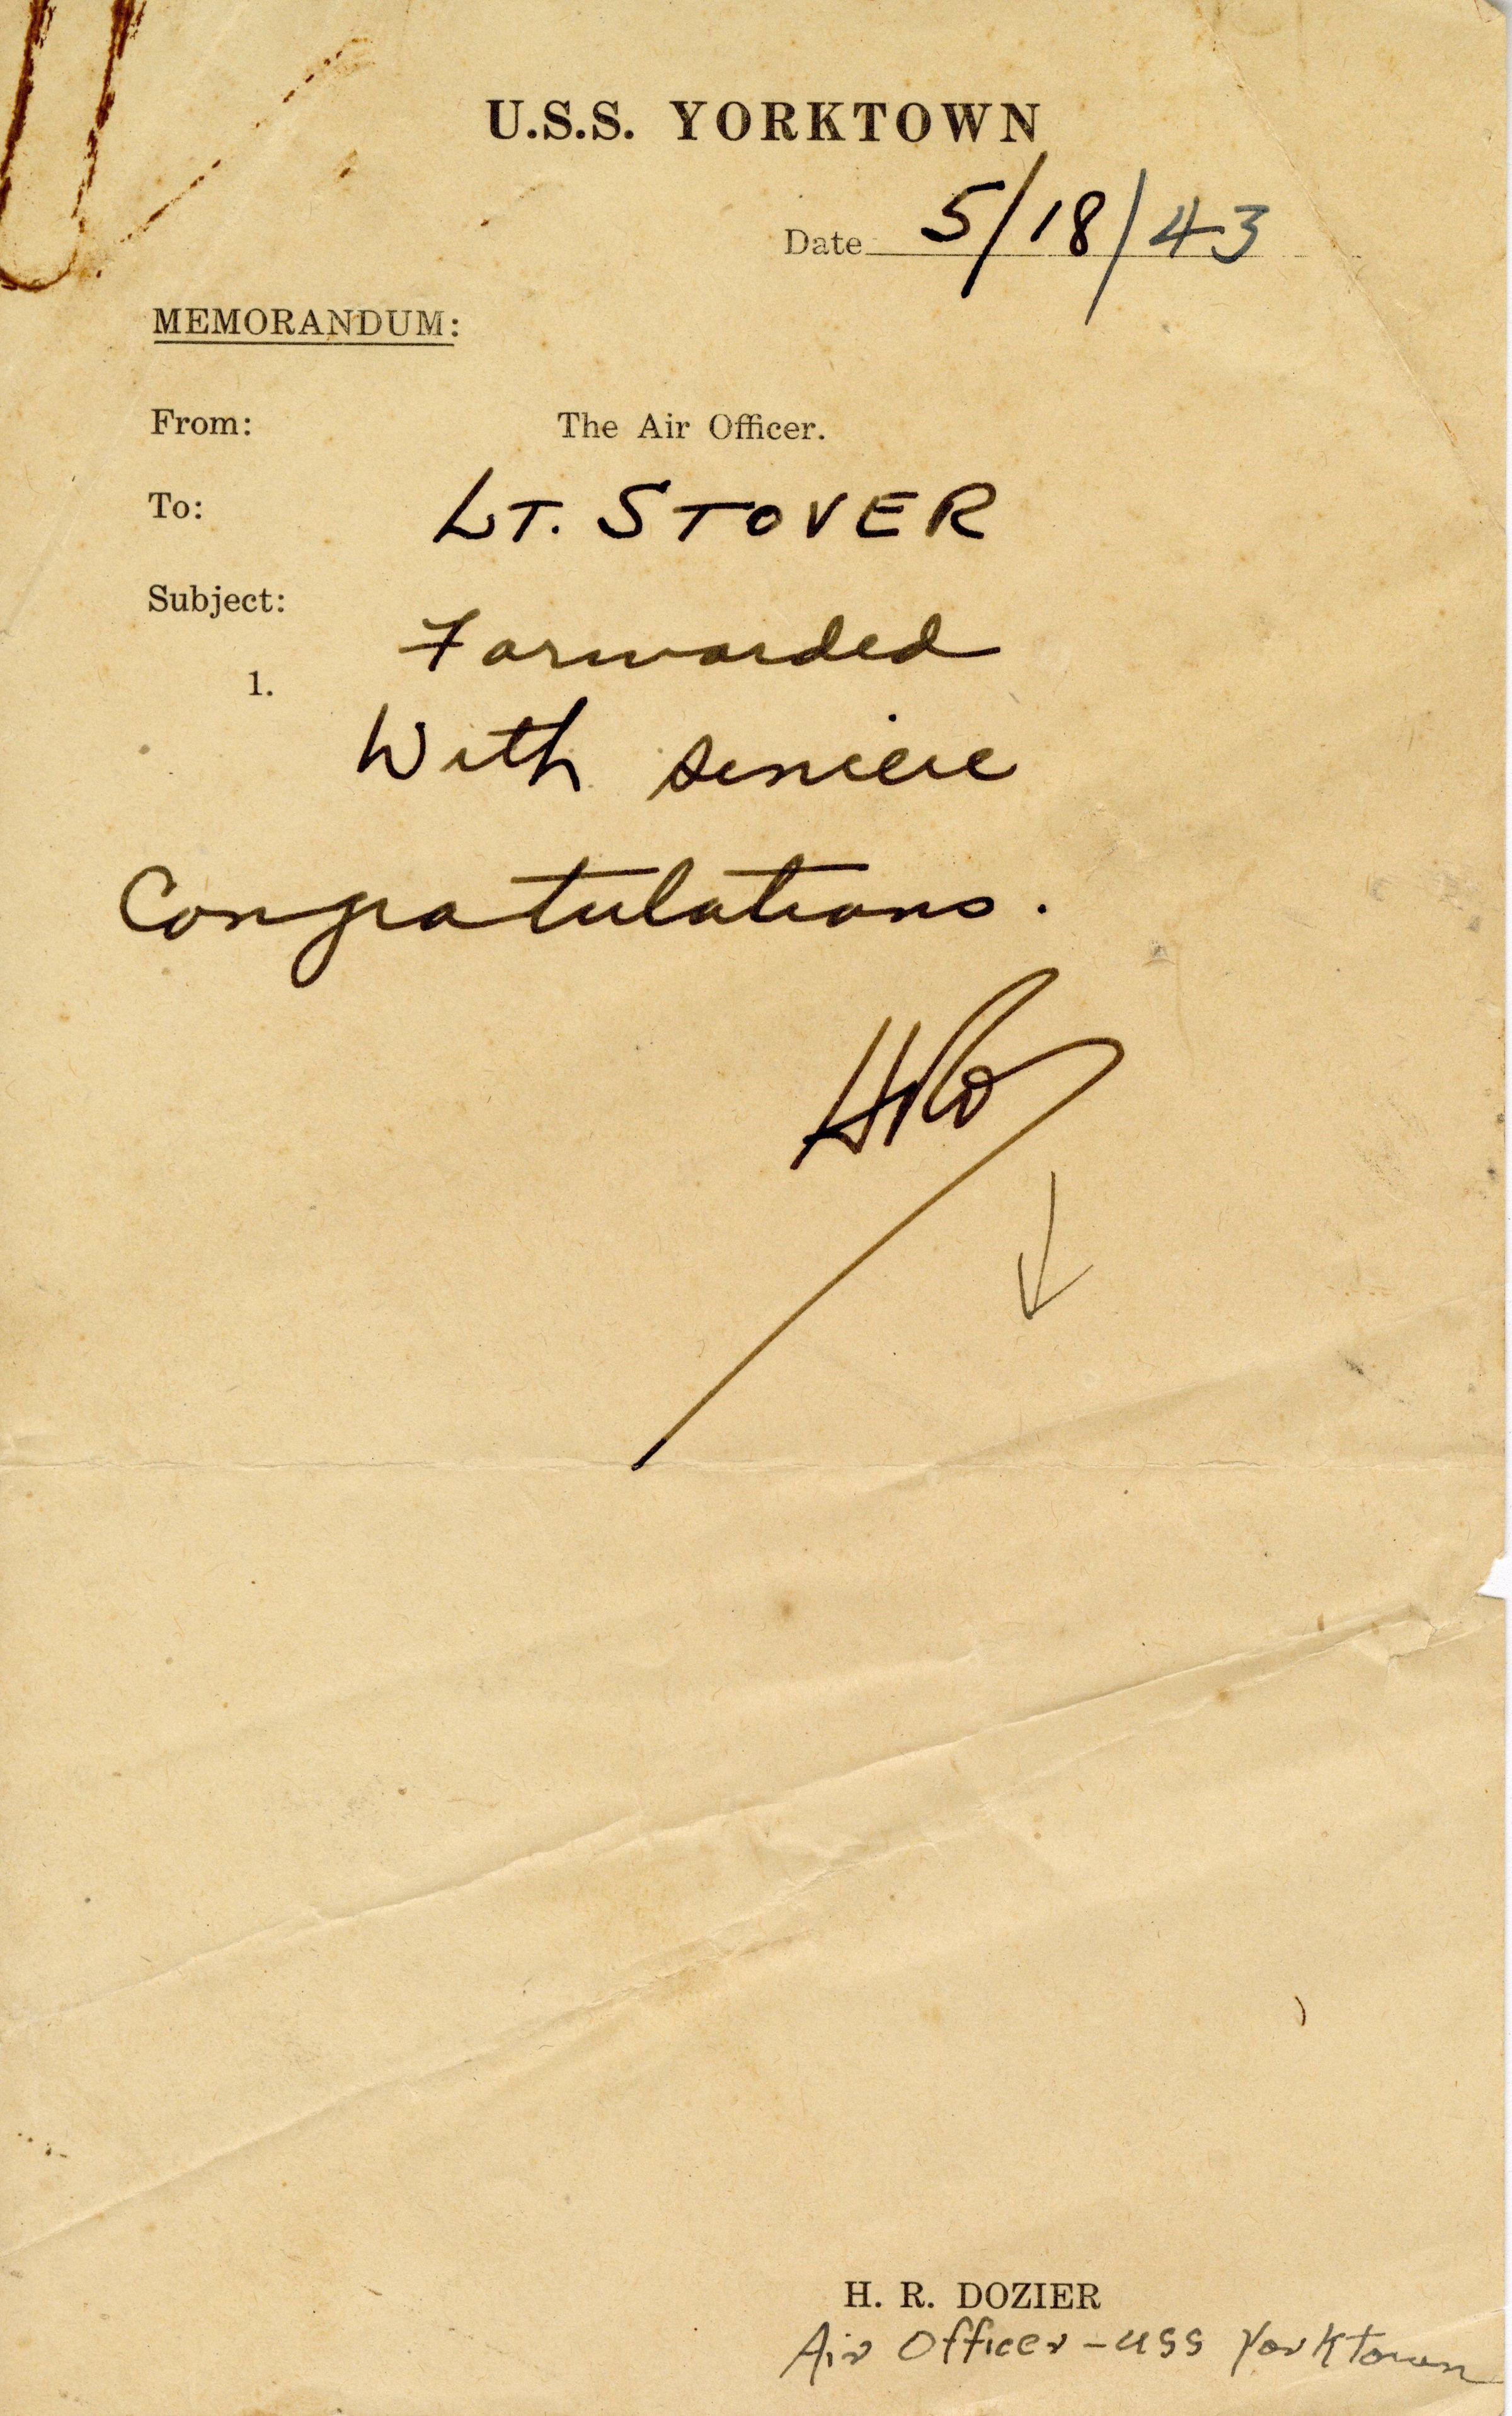 U.S.S. YORKTOWN
Date 5/18/43
MEMORANDUM:
From: The Air Officer.
To: LT. STOVER
Subject: Forwarded
1.
With sincere
Congratulations.
HRD
H. R. DOZIER
Air Officer - USS Yorktown